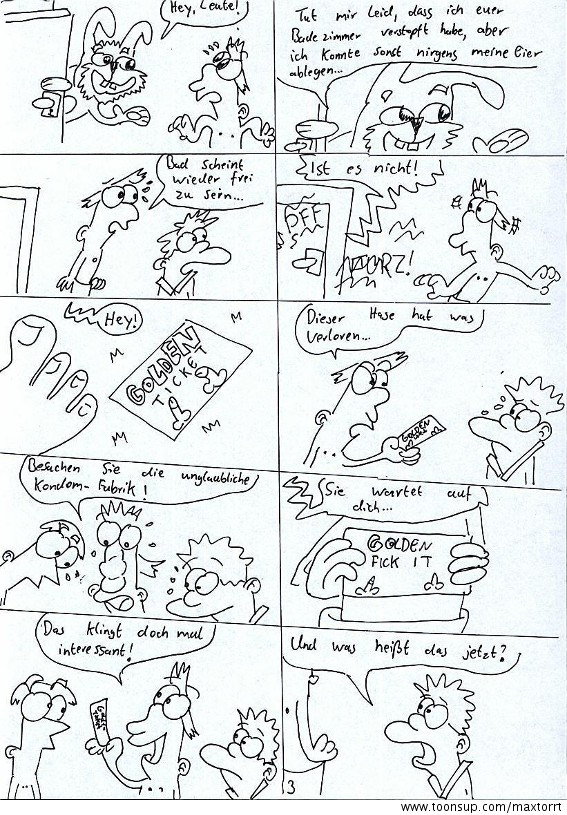 Hey, Leute!
Tut mir Leid, dass ich euer
Badezimmer verstopft habe, aber
ich konnte sonst nirgens meine Eier
ablegen...
Bad scheint
wieder frei
zu sein...
Ist es nicht!
PFF
FURZ!
Hey!
GOLDEN
TICKET
Dieser Hase hat was
verloren...
GOLDEN
Besuchen Sie die unglaubliche
Kondom-Fabrik!
Sie wartet auf
dich...
GOLDEN
FICK IT
Das klingt doch mal
interessant!
Und was heißt das jetzt?
3
www.toonsup.com/maxtorrt